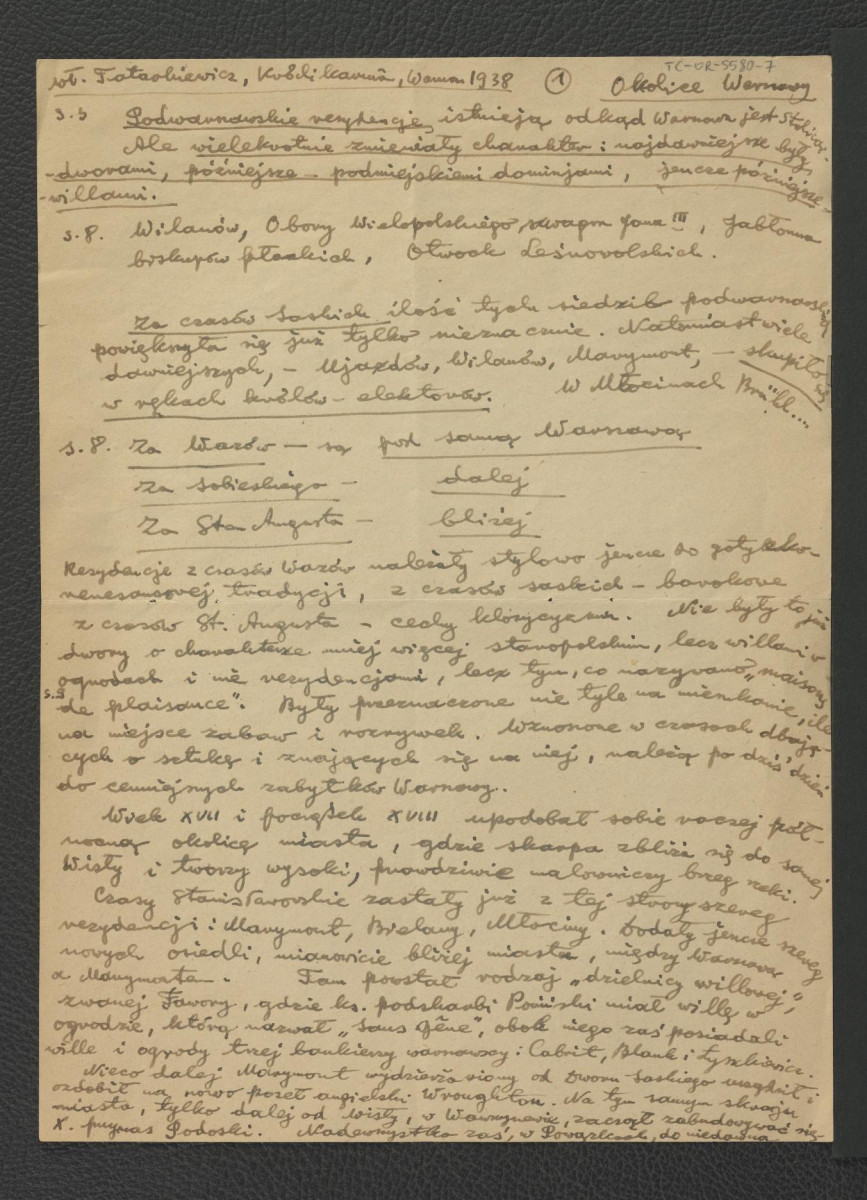 TC-OR-5580-7
Wł. Tatarkiewicz, Królikarnia, Warsz. 1938 ① Okolice Warszawy
s.5 Podwarszawskie rezydencje, istnieją odkąd Warszawa jest stolicą.
Ale wielekrotnie zmieniały charakter: najdawniejsze były
-dworami, późniejsze – podmiejskiemi dominjami, jeszcze późniejsze-
-willami.
s.8. Wilanów, Obory Wielopolskiego szwagra Jana III, Jabłonna
biskupów płockich, Otwock Leśnowolskich.
Za czasów saskich ilość tych siedzib podwarszawskich
powiększyła się już tylko nieznacznie. Natomiast wiele
dawniejszych, – Ujazdów, Wilanów, Marymont, – skupiło się
w rękach królów-elektorów. W Młocinach Brühl....
s.8. Za Wazów — są pod samą Warszawą
Za Sobieskiego – dalej
Za Stan Augusta – bliżej
Rezydencje z czasów Wazów należały stylowo jeszcze do gotycko-
renesansowej tradycji, z czasów saskich – barokowe
z czasów St. Augusta – cechy klasycyzmu. Nie były to już
dwory o charakterze mniej więcej staropolskim, lecz willami w
ogrodach i nie rezydencjami, lecz tym, co nazywano „maisons
s.9 de plaisance". Były przeznaczone nie tyle na mieszkanie, ile
na miejsce zabaw i rozrywek. Wznoszone w czasach dbają-
cych o sztukę i znających się na niej, należą po dziś dzień
do cenniejszych zabytków Warszawy.
Wiek XVII i początek XVIII upodobał sobie raczej pół-
nocną okolicę miasta, gdzie skarpa zbliża się do samej
Wisły i tworzy wysoki, prawdziwie malowniczy brzeg rzeki.
Czasy Stanisławowskie zastały już z tej strony szereg
rezydencji: Marymont, Bielany, Młociny. Dodały jeszcze szereg
nowych osiedli, mianowicie bliżej miasta, między Warszawą
a Marymontem. Tam powstał rodzaj „dzielnicy willowej",
zwanej Fawory, gdzie ks. podskarbi Poniński miał willę w
ogrodzie, którą nazwał „Sans Gêne", obok niego zaś posiadali
wille i ogrody trzej bankierzy warszawscy: Cabrit, Blank i Tyszkiewicz.
Nieco dalej Marymont wydzierżawiony od dworu saskiego urządził i
ozdobił na nowo poseł angielski Wroughton. Na tym samym skraju
miasta, tylko dalej od Wisły, w Wawrzyszewie, zaczął zabudowywać się
X. prymas Podoski. Nadewszystko zaś, w Powązkach, do niedawna